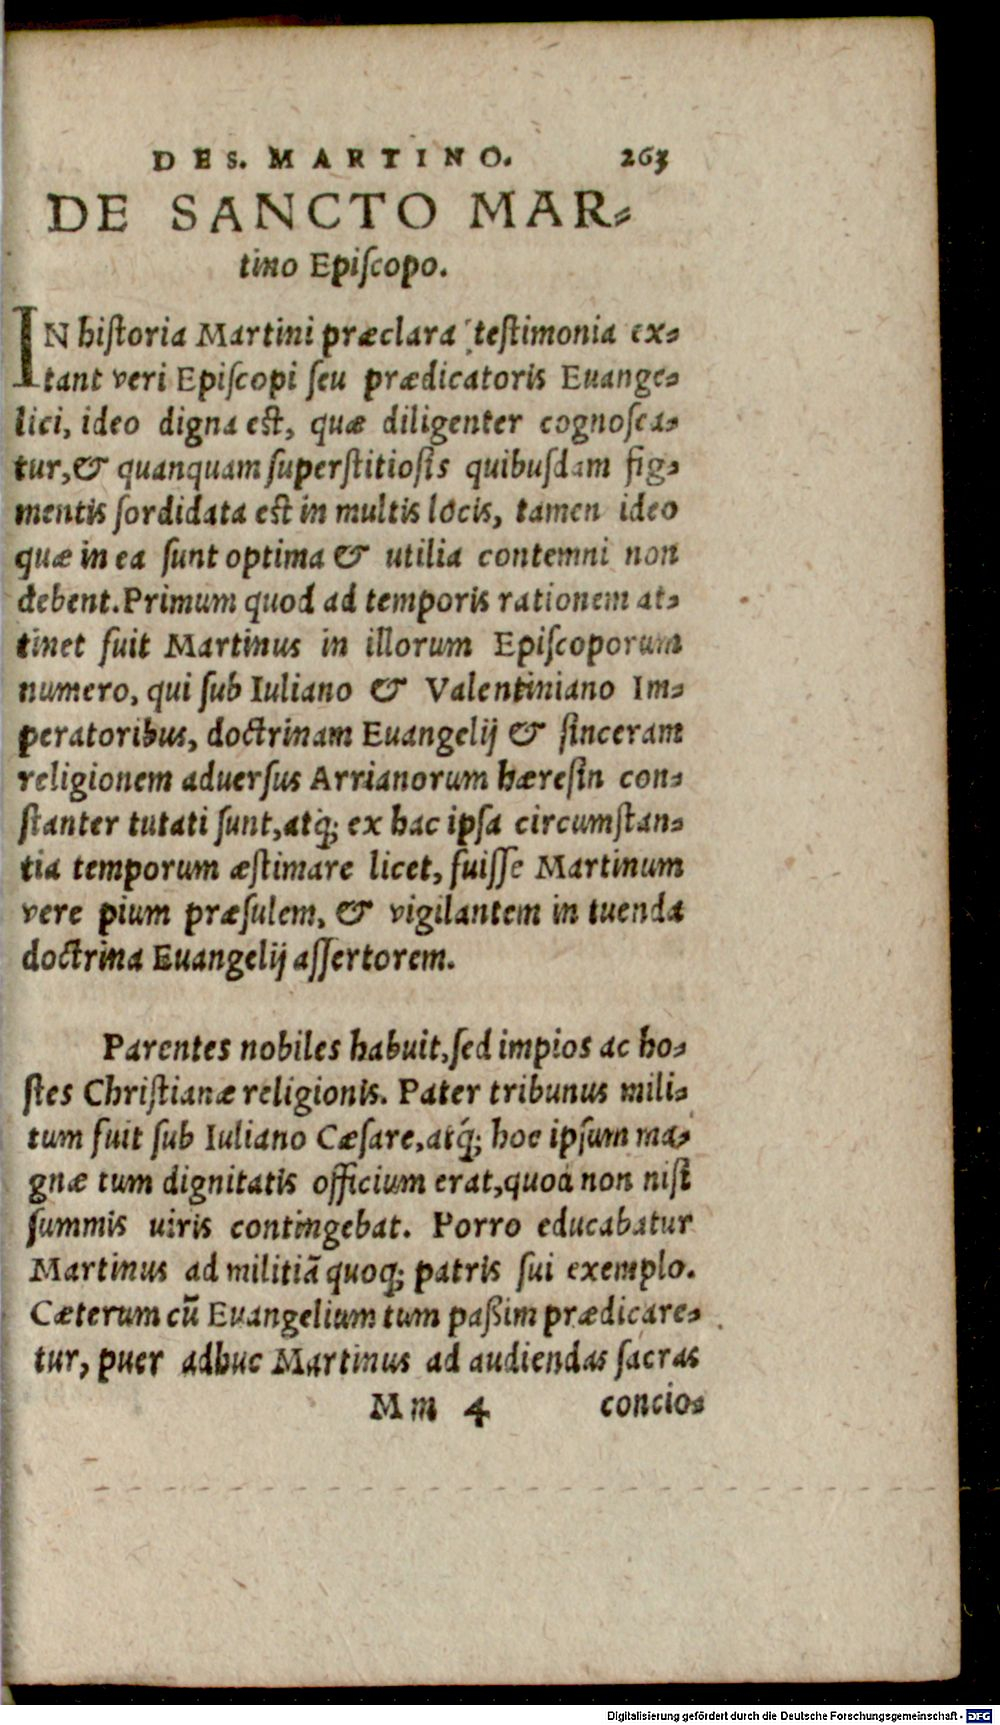 DE S. MARTINO. 263
DE SANCTO MAR-
tino Epiſcopo.
IN hiſtoria Martini præclara teſtimonia ex-
tant veri Epiſcopi ſeu prædicatoris Euange-
lici, ideo digna eſt, quæ diligenter cognoſca-
tur, & quanquam ſuperſtitioſis quibuſdam fig-
mentis ſordidata eſt in multis locis, tamen ideo
quæ in ea ſunt optima & utilia contemni non
debent. Primum quod ad temporis rationem at-
tinet fuit Martinus in illorum Epiſcoporum
numero, qui ſub Iuliano & Valentiniano Im-
peratoribus, doctrinam Euangelij & ſinceram
religionem aduerſus Arrianorum hæreſin con-
ſtanter tutati ſunt, atq́; ex hac ipſa circumſtan-
tia temporum æſtimare licet, fuiſſe Martinum
vere pium præſulem, & vigilantem in tuenda
doctrina Euangelij aſſertorem.
Parentes nobiles habuit, ſed impios ac ho-
ſtes Chriſtianæ religionis. Pater tribunus mili-
tum fuit ſub Iuliano Cæſare, atq́; hoc ipſum ma-
gnæ tum dignitatis officium erat, quod non niſi
ſummis uiris contingebat. Porro educabatur
Martinus ad militiã quoq; patris ſui exemplo.
Cæterum cũ Euangelium tum paßim prædicare-
tur, puer adhuc Martinus ad audiendas ſacras
Mm 4 concio-
Digitalisierung gefördert durch die Deutsche Forschungsgemeinschaft - DFG